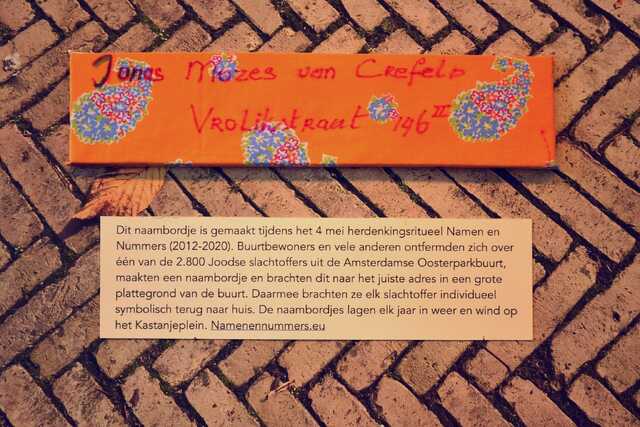 Jonas Mozes van Crefeld
Vrolikstraat 146 III
Dit naambordje is gemaakt tijdens het 4 mei herdenkingsritueel Namen en
Nummers (2012-2020). Buurtbewoners en vele anderen ontfermden zich over
één van de 2.800 Joodse slachtoffers uit de Amsterdamse Oosterparkbuurt,
maakten een naambordje en brachten dit naar het juiste adres in een grote
plattegrond van de buurt. Daarmee brachten ze elk slachtoffer individueel
symbolisch terug naar huis. De naambordjes lagen elk jaar in weer en wind op
het Kastanjeplein. Namenennummers.eu